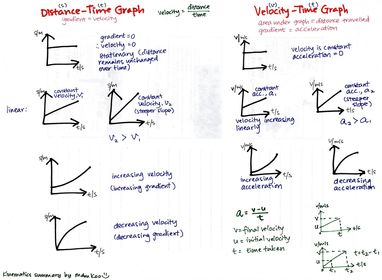 (s) (t)
Distance-Time Graph
gradient = velocity
velocity = distance
time
(v) (t)
Velocity-Time Graph
area under graph = distance travelled
gradient = acceleration
s/m
t/s
gradient = 0
∴ velocity = 0
stationary (distance
remains unchanged
over time)
v/m/s
t/s
velocity is constant
acceleration = 0
linear:
s/m
constant
velocity, v₁
t/s
s/m
constant
velocity, v₂
(steeper slope)
t/s
v₂ > v₁
v/m/s
constant
acc., a₁
t/s
velocity increasing
linearly
v/m/s
constant
acc., a₂
(steeper
slope)
t/s
a₂ > a₁
s/m
t/s
increasing velocity
(increasing gradient)
v/m/s
t/s
increasing
acceleration
v/m/s
t/s
decreasing
acceleration
s/m
t/s
decreasing velocity
(decreasing gradient)
a = v-u
t
v = final velocity
u = initial velocity
t = time taken
v/m/s
v
u
t
t/s
v/m/s
v
u
t = t₂ - t₁
t₁ t₂
t/s
Kinematics summary by